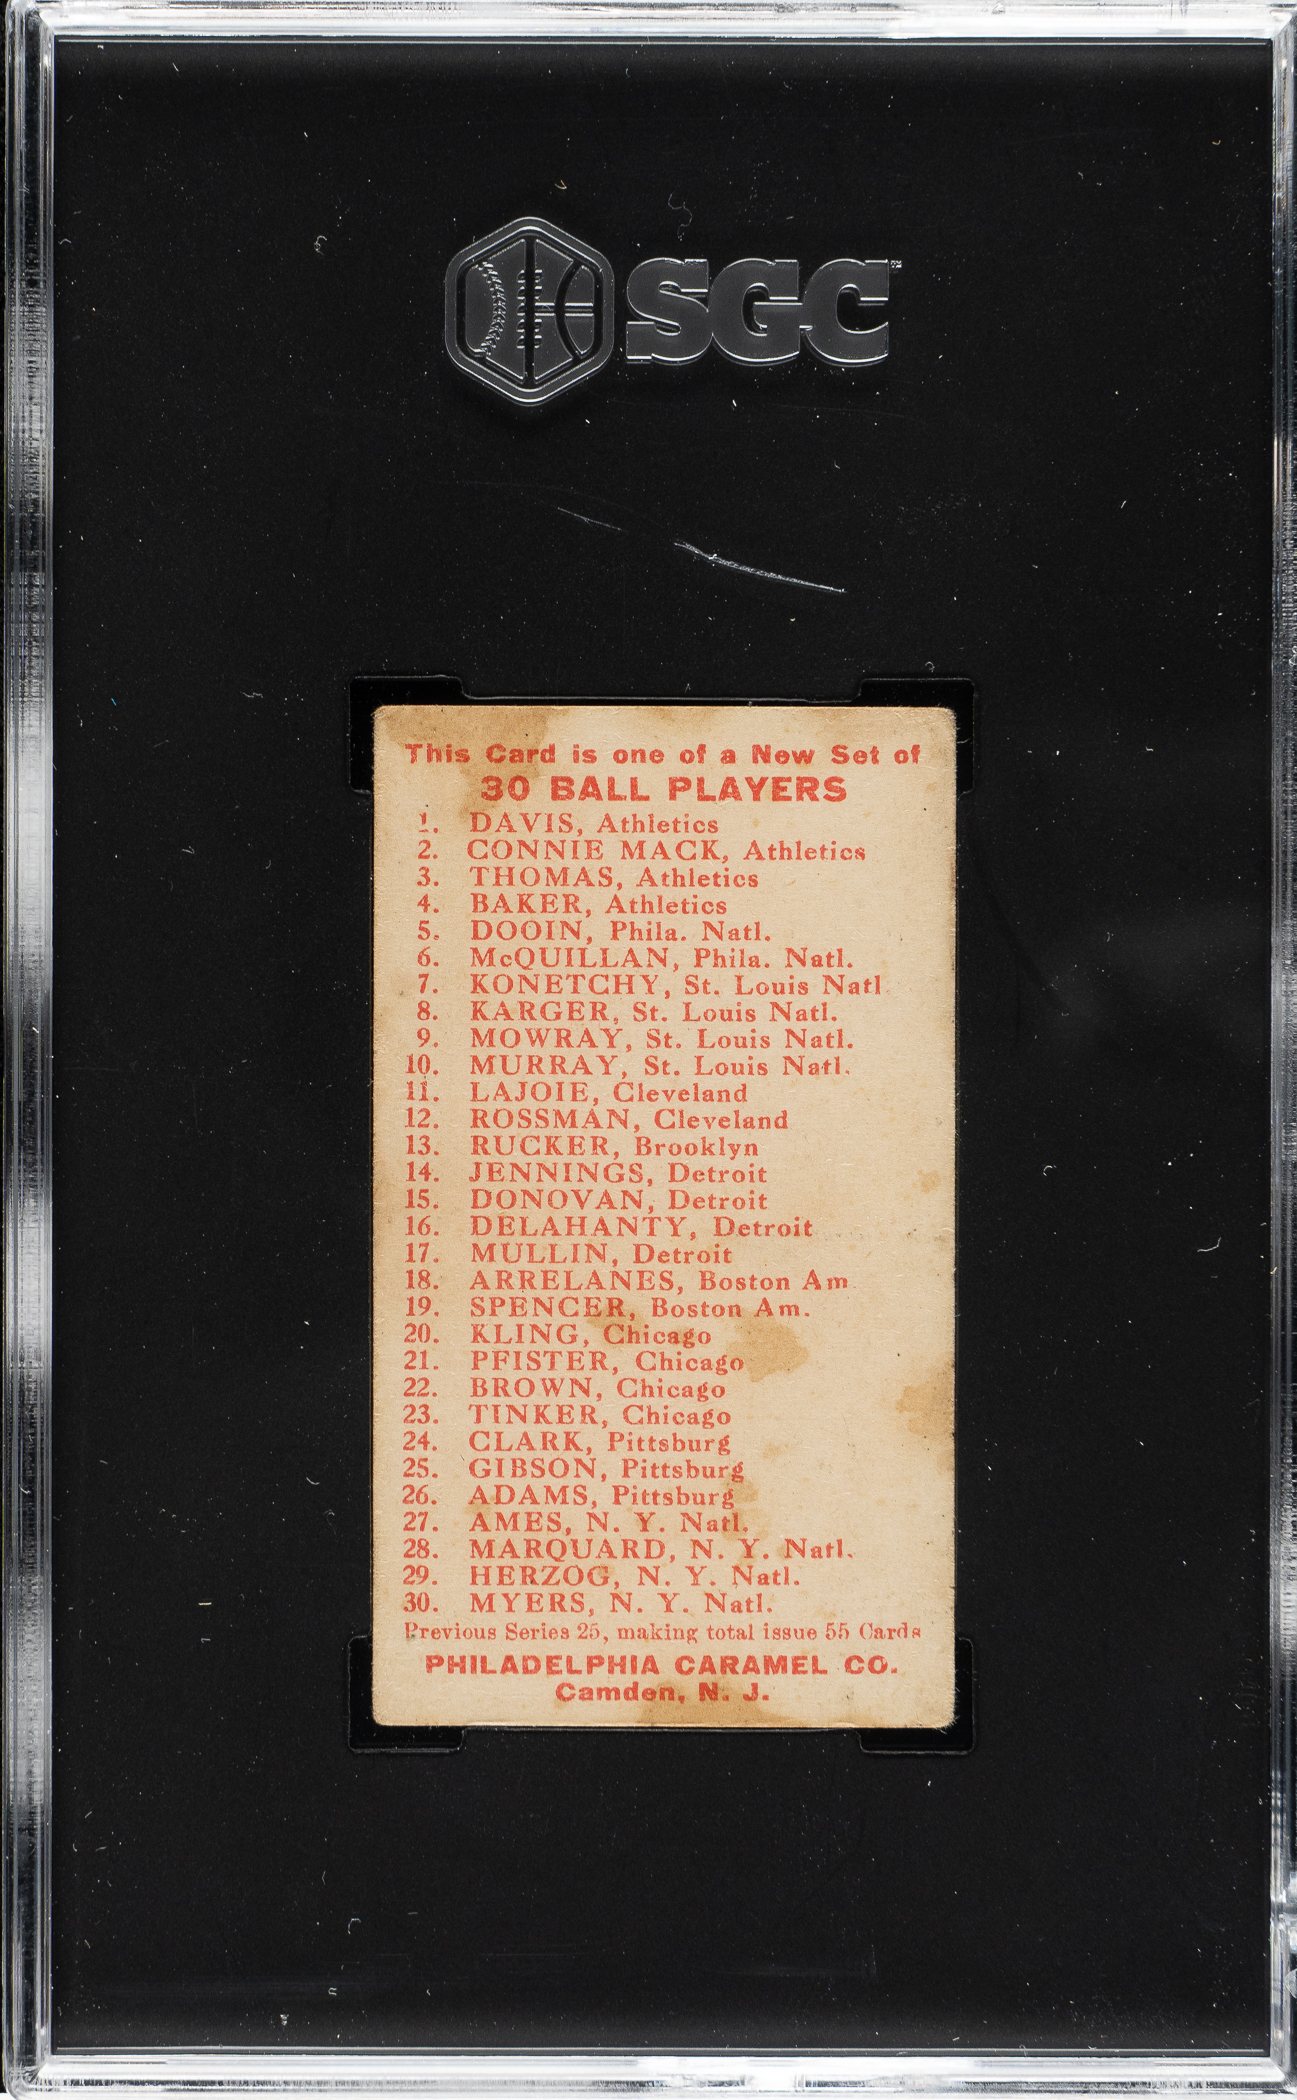 SGC™
This Card is one of a New Set of
30 BALL PLAYERS
1. DAVIS, Athletics
2. CONNIE MACK, Athletics
3. THOMAS, Athletics
4. BAKER, Athletics
5. DOOIN, Phila. Natl.
6. McQUILLAN, Phila. Natl.
7. KONETCHY, St. Louis Natl.
8. KARGER, St. Louis Natl.
9. MOWRAY, St. Louis Natl.
10. MURRAY, St. Louis Natl.
11. LAJOIE, Cleveland
12. ROSSMAN, Cleveland
13. RUCKER, Brooklyn
14. JENNINGS, Detroit
15. DONOVAN, Detroit
16. DELAHANTY, Detroit
17. MULLIN, Detroit
18. ARRELANES, Boston Am
19. SPENCER, Boston Am.
20. KLING, Chicago
21. PFISTER, Chicago
22. BROWN, Chicago
23. TINKER, Chicago
24. CLARK, Pittsburg
25. GIBSON, Pittsburg
26. ADAMS, Pittsburg
27. AMES, N. Y. Natl.
28. MARQUARD, N. Y. Natl.
29. HERZOG, N. Y. Natl.
30. MYERS, N. Y. Natl.
Previous Series 25, making total issue 55 Cards
PHILADELPHIA CARAMEL CO.
Camden, N. J.